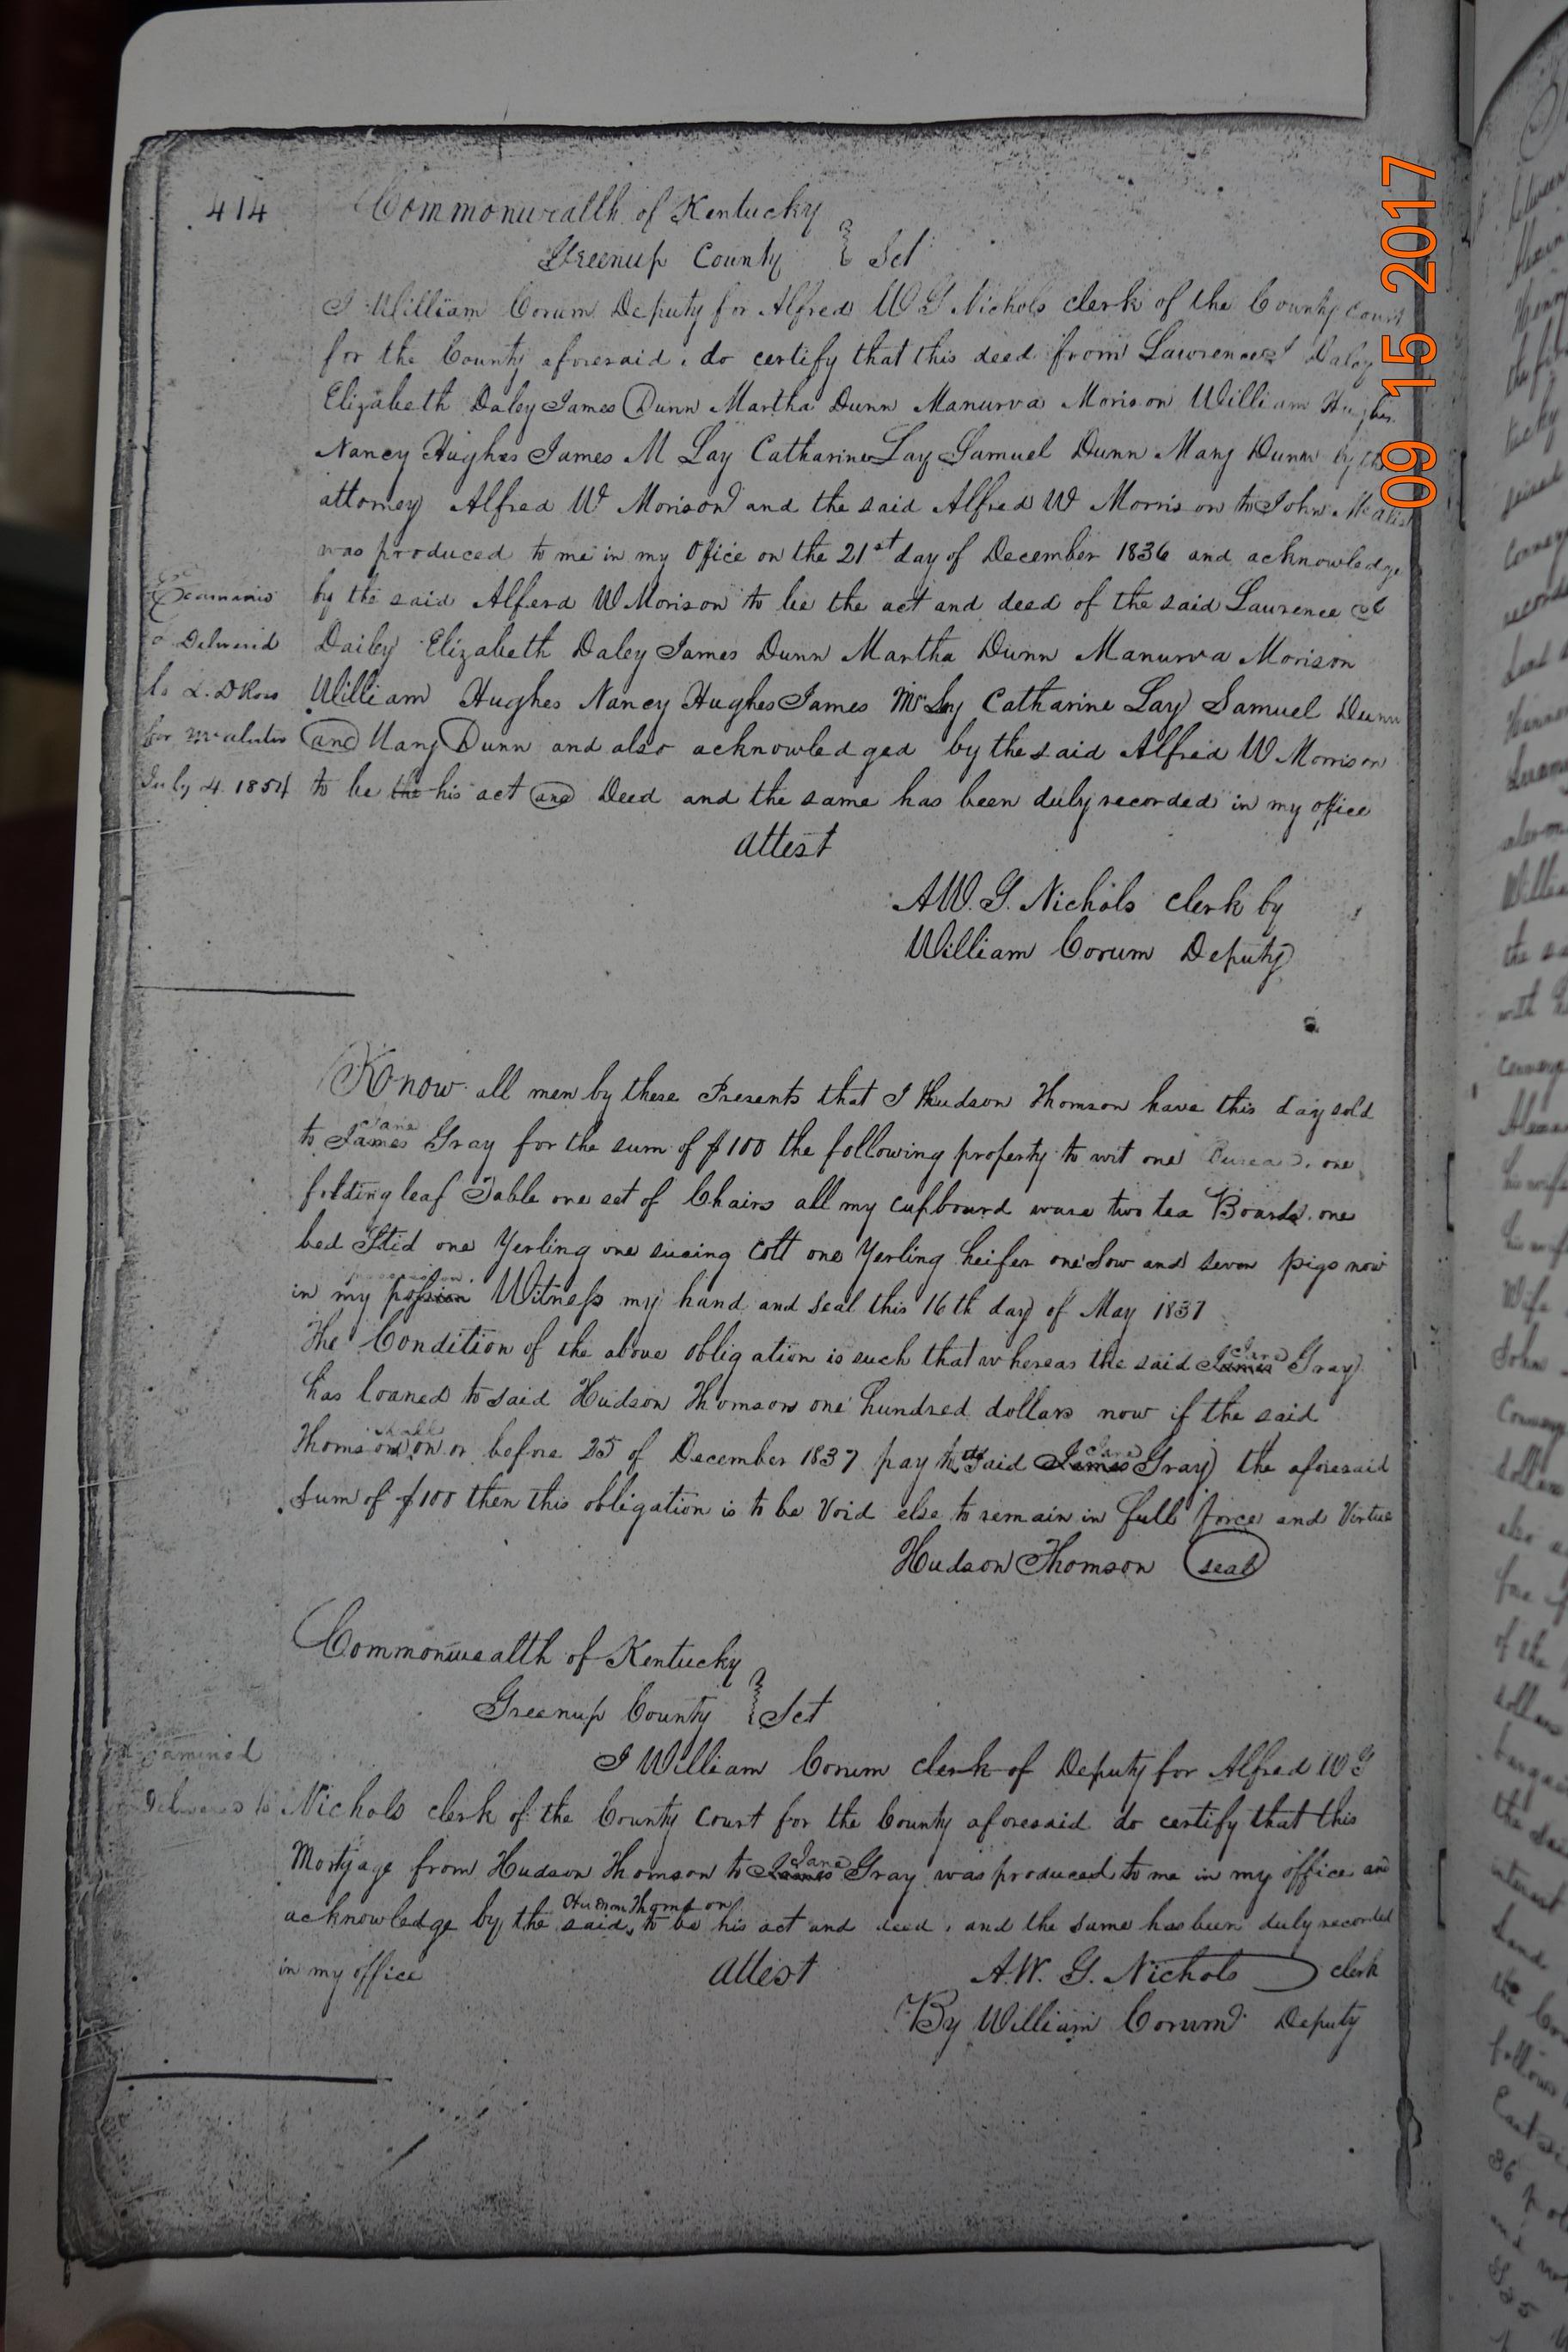 414
Commonwealth of Kentucky
Greenup County } Sct
I William Corum Deputy for Alfred W G Nichols clerk of the County court
for the County aforesaid. do certify that this deed from Lawrence Daley
Elizabeth Daley James Dunn Martha Dunn Manurva Morison William Hughes
Nancy Hughes James M Lay Catharine Lay Samuel Dunn Mary Dunn by
attorney Alfred W Morison and the said Alfred W Morrison to John
was produced to me in my Office on the 21st day of December 1836 and acknowledge
by the said Alferd W Morison to be the act and deed of the said Laurence
Dailey Elizabeth Daley James Dunn Martha Dunn Manurva Morison
William Hughes Nancy Hughes James Mc Lay Catharine Lay Samuel Dunn
and Mary Dunn and also acknowledged by the said Alfred W Morrison
to be the his act and Deed and the same has been duly recorded in my office
attest
A W. G. Nichols clerk by
William Corum Deputy
Delivered
to L. D Ross
for
July 4 1854
Know all men by these Presents that I Hudson Thomson have this day sold
Jane
to James Gray for the sum of $100 the following property to wit one Bureau. one
folding leaf Table one set of Chairs all my cupboard ware two tea Boards. one
bed Stid one Yerling one sucing Colt one Yerling heifer one Sow and seven pigs now
possession
in my possion Witness my hand and seal this 16th day of May 1837
Jane
The Condition of the above obligation is such that whereas the said James Gray
has loaned to said Hudson Thomson one hundred dollars now if the said
shall Jane
Thomson on or before 25 of December 1837 pay to the Said James Gray the aforesaid
Sum of $100 then this obligation is to be Void else to remain in full force and Virtue
Hudson Thomson seal
Commonwealth of Kentucky
Greenup County } Sct
Examined
I William Corum clerk of Deputy for Alfred W G
Delivered to
Nichols clerk of the County Court for the County aforesaid do certify that this
Jane
Mortgage from Hudson Thomson to James Gray was produced to me in my office and
Hudson Thomson
acknowledge by the said to be his act and deed. and the same has been duly recorded
in my office attest A. W. G. Nichols clerk
By William Corum Deputy
09 15 2017